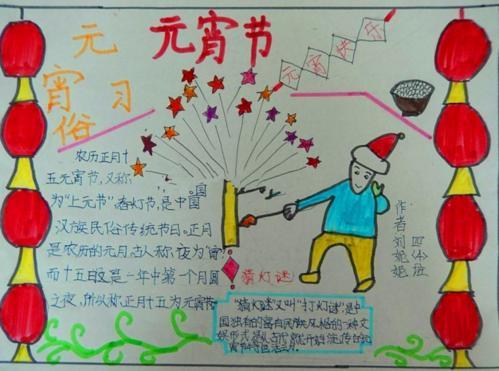 元宵节
元宵快乐
元
宵 习
俗
农历正月十
五元宵节,又称
为"上元节"春灯节,是中国
汉族民俗传统节日。正月
是农历的元月,古人称夜为"宵"
而十五日又是一年中第一个月圆
之夜,所以称正月十五为元宵节
猜灯谜
"猜灯谜"又叫"打灯谜"是中
国独有的富有民族风格的一种文
娱形式,是从古代就开始流传的元
宵节特色活动。
作者刘妮妮